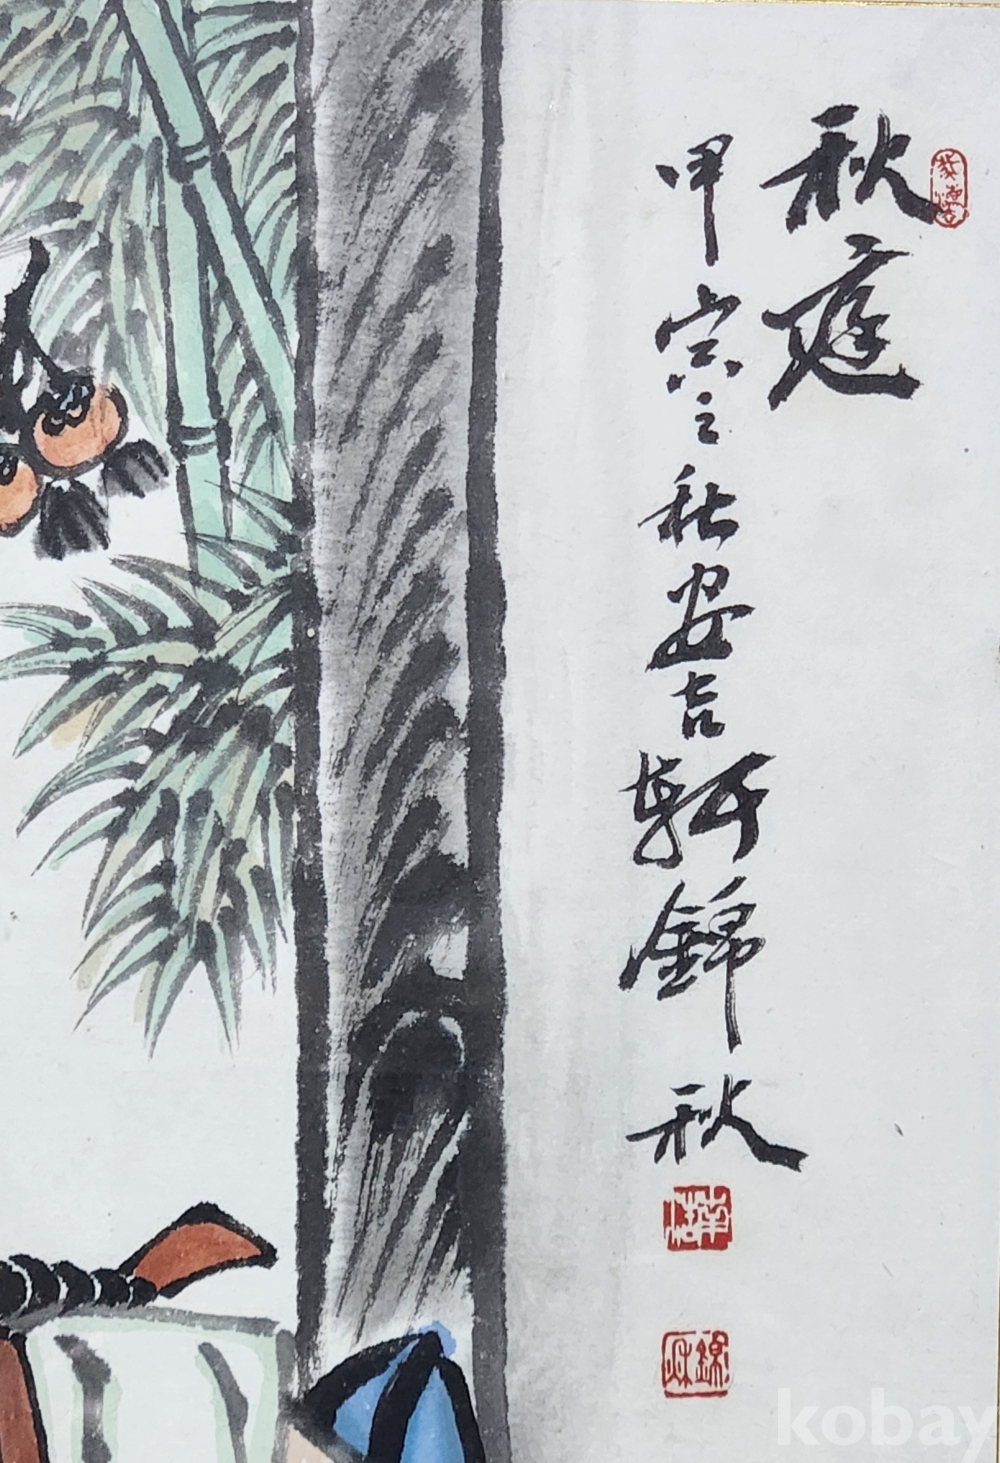 秋庭
甲寅之秋安吉軒錦秋
錦秋
kobay